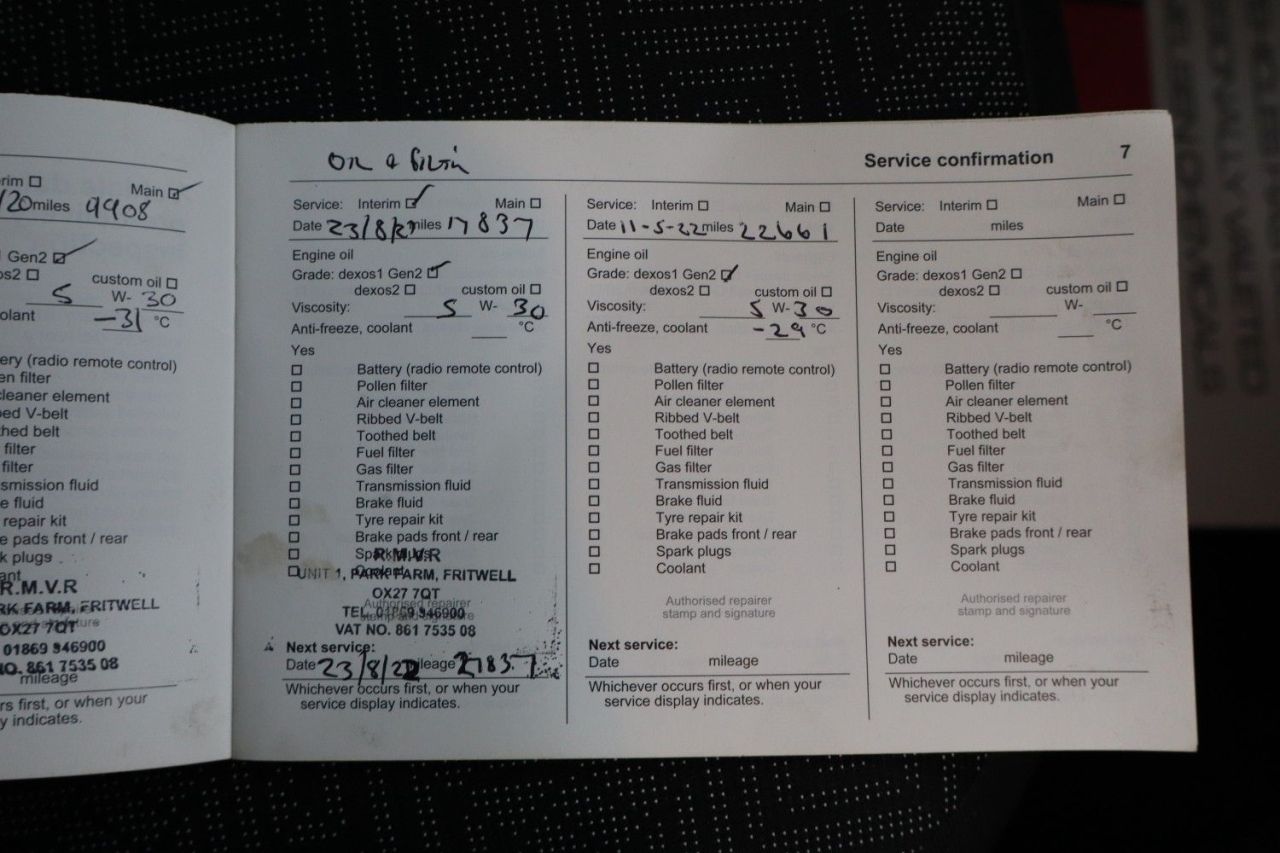 rim ☐ Main ☑
/20miles 9908
Gen2 ☑
os2 ☐ custom oil ☐
5 W- 30
olant -31 °C
ery (radio remote control)
en filter
cleaner element
bed V-belt
thed belt
filter
filter
smission fluid
e fluid
repair kit
e pads front / rear
k plugs
ant
R.M.V.R
RK FARM, FRITWELL
OX27 7QT
01869 346900
NO. 861 7535 08
mileage
rs first, or when your
y indicates.
Service confirmation 7
OIL & Filter
Service: Interim ☑ Main ☐
Date 23/8/21 miles 17837
Engine oil
Grade: dexos1 Gen2 ☑
dexos2 ☐ custom oil ☐
Viscosity: 5 W- 30
Anti-freeze, coolant °C
Yes
☐ Battery (radio remote control)
☐ Pollen filter
☐ Air cleaner element
☐ Ribbed V-belt
☐ Toothed belt
☐ Fuel filter
☐ Gas filter
☐ Transmission fluid
☐ Brake fluid
☐ Tyre repair kit
☐ Brake pads front / rear
☐ Spark plugs
☐ Coolant
R.M.V.R
UNIT 1, PARK FARM, FRITWELL
OX27 7QT
TEL. 01869 346900
VAT NO. 861 7535 08
Authorised repairer
stamp and signature
Next service:
Date 23/8/22 mileage 27837
Whichever occurs first, or when your
service display indicates.
Service: Interim ☐ Main ☐
Date 11-5-22 miles 22661
Engine oil
Grade: dexos1 Gen2 ☑
dexos2 ☐ custom oil ☐
Viscosity: 5 W- 30
Anti-freeze, coolant -29 °C
Yes
☐ Battery (radio remote control)
☐ Pollen filter
☐ Air cleaner element
☐ Ribbed V-belt
☐ Toothed belt
☐ Fuel filter
☐ Gas filter
☐ Transmission fluid
☐ Brake fluid
☐ Tyre repair kit
☐ Brake pads front / rear
☐ Spark plugs
☐ Coolant
Authorised repairer
stamp and signature
Next service:
Date mileage
Whichever occurs first, or when your
service display indicates.
Service: Interim ☐ Main ☐
Date miles
Engine oil
Grade: dexos1 Gen2 ☐
dexos2 ☐ custom oil ☐
Viscosity: W-
Anti-freeze, coolant °C
Yes
☐ Battery (radio remote control)
☐ Pollen filter
☐ Air cleaner element
☐ Ribbed V-belt
☐ Toothed belt
☐ Fuel filter
☐ Gas filter
☐ Transmission fluid
☐ Brake fluid
☐ Tyre repair kit
☐ Brake pads front / rear
☐ Spark plugs
☐ Coolant
Authorised repairer
stamp and signature
Next service:
Date mileage
Whichever occurs first, or when your
service display indicates.